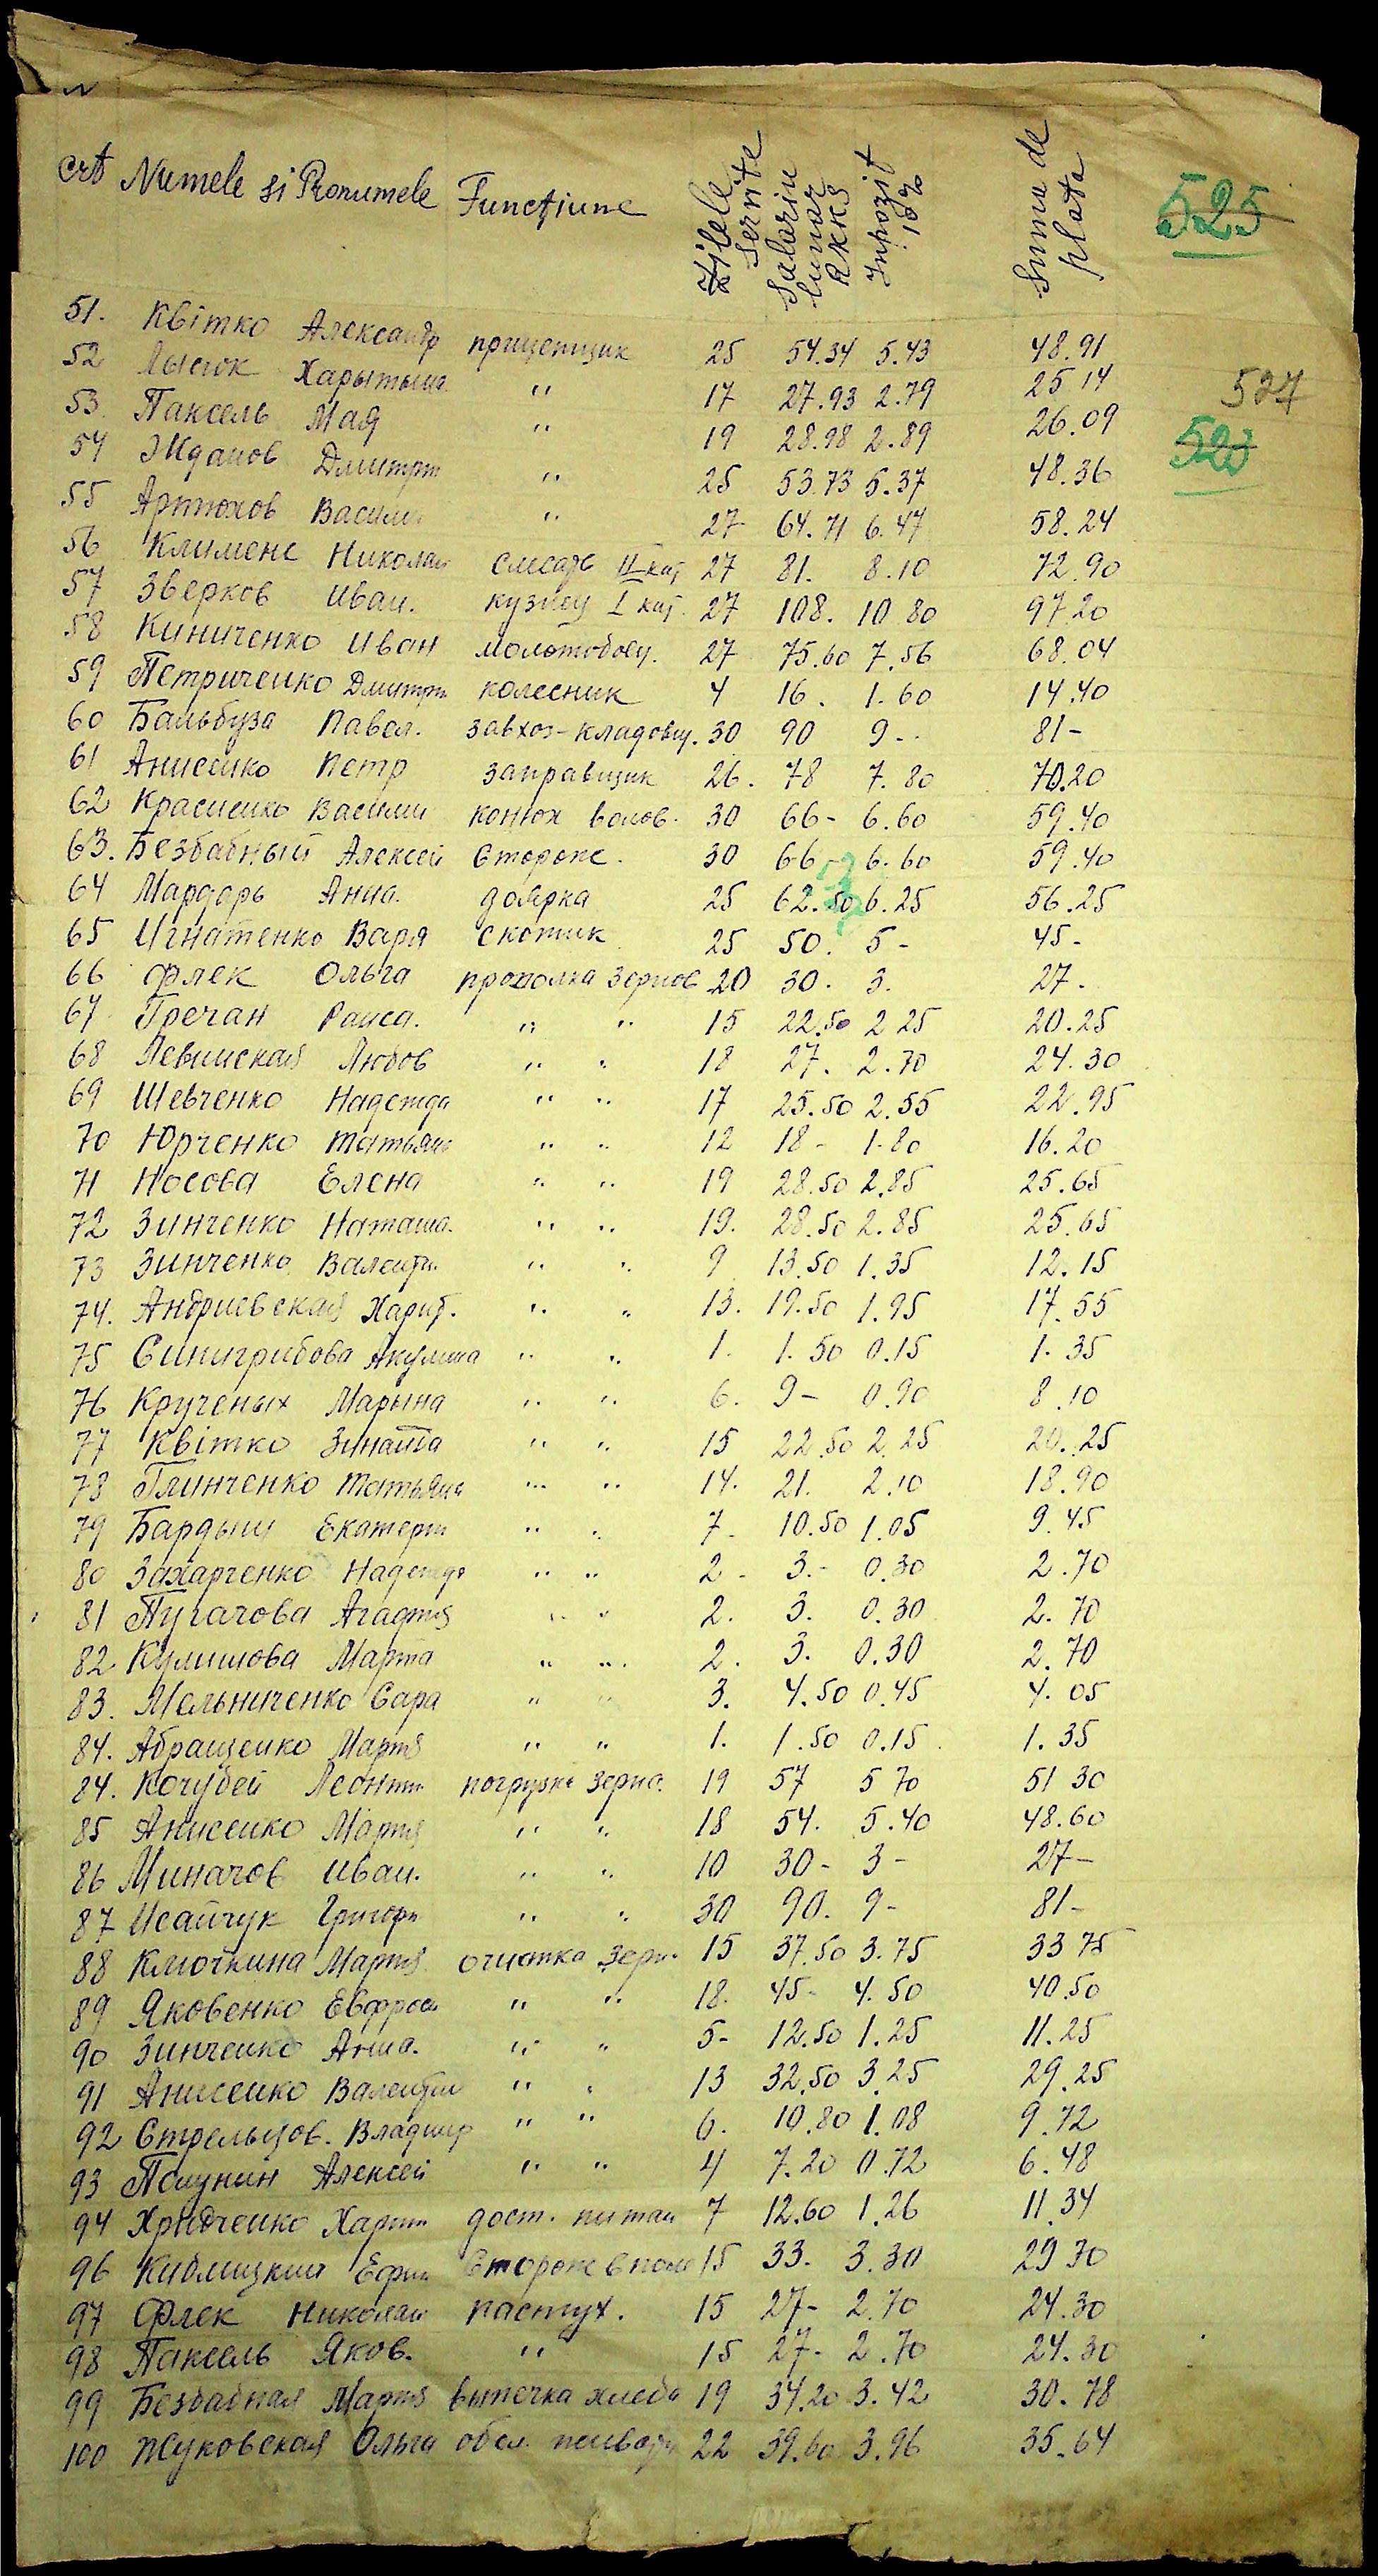 crt Numele si Pronumele Funcțiune Zilele Servite Salariu lunar RKKS Inpozit 10% Suma de plata 525
51. Квітко Александр прицепщик 25 54.34 5.43 48.91
52 Лысюк " 17 27.93 2.79 25 14
527
53. Паксель " 19 28.98 2.89 26.09
523
54 Жданов Дмитри " 25 53.73 5.37 48.36
55 Артюхов Васили " 27 64.71 6.47 58.24
56 Клименс Николаи слесарь II кат 27 81. 8.10 72.90
57 Зверков Иван. кузнец I кат. 27 108. 10 80 97.20
58 Киниченко Иван молотобоец. 27 75.60 7.56 68.04
59 Петриченко Дмитри колесник 4 16. 1.60 14.40
60 Бальбуза Павел. завхоз-кладовщ. 30 90 9-. 81-
61 Анисенко Петр заправщик 26. 78 7.80 70.20
62 Красненко Васили конюх волов. 30 66- 6.60 59.40
63. Безбабный Алексей Сторож. 30 66- 6.60 59.40
64 Мардарь Анна. доярка 25 62.50 6.25 56.25
65 Игнатенко Варя скотник 25 50. 5- 45-
66 Флек Ольга прополка зернов 20 30. 3. 27.
67 Гречан Раиса. " " 15 22.50 2 25 20.25
68 Левинская Любов " " 18 27. 2.70 24.30
69 Шевченко Надежда " " 17 25.50 2.55 22.95
70 Юрченко Татьяна " " 12 18- 1.80 16.20
71 Носова Елена " " 19 28.50 2.85 25.65
72 Зинченко Наташа. " " 19. 28.50 2.85 25.65
73 Зинченко Валенти. " " 9 13.50 1.35 12.15
74. Андриевская Харит. " " 13. 19.50 1.95 17.55
75 Синигрибова Акулина " " 1. 1.50 0.15 1.35
76 Крученых Марына " " 6. 9- 0.90 8.10
77 Квітко Зинаида " " 15 22.50 2.25 20.25
78 Глинченко Татьяна " " 14. 21. 2.10 18.90
79 Бардыш Екатери " " 7- 10.50 1.05 9.45
80 Захарченко Надежда " " 2- 3.- 0.30 2.70
81 Пугачова Агафия " " 2. 3. 0.30 2.70
82 Кулишова Марта " " 2. 3. 0.30 2.70
83. Мельниченко Сара " " 3. 4.50 0.45 4.05
84. Абращенко Мария " " 1. 1.50 0.15 1.35
84. Кочубей Леонти погрузка зерна. 19 57 5 70 51 30
85 Анисенко Мария " " 18 54. 5.40 48.60
86 Миначов Иван. " " 10 30- 3- 27-
87 Исайчук Григори " " 30 90. 9- 81-
88 Клюткина Мария очистка зерн. 15 37.50 3.75 33 75
89 Яковенко Евфрос " " 18. 45- 4.50 40.50
90 Зинченко Анна. " " 5- 12.50 1.25 11.25
91 Анисенко Валенти " " 13 32.50 3.25 29.25
92 Стрельцов. Владимир " " 6. 10.80 1.08 9.72
93 Пшунин Алексей " " 4 7.20 0.72 6.48
94 дост. питан 7 12.60 1.26 11.34
96 Ефим Сторож в поле 15 33. 3.30 29 70
97 Флек Николаи пастух. 15 27- 2.70 24.30
98 Паксель Яков. " 15 27- 2.70 24.30
99 Безбабная Мария выпечка хлеба 19 34.20 3.42 30.78
100 Жуковская Ольга обсл. 22 39.60 3.96 35.64